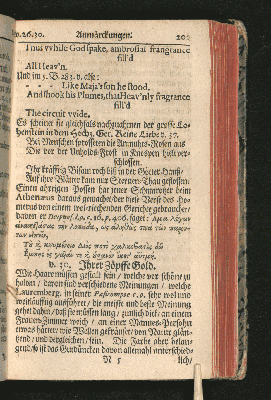 v.26.30. Anmärckungen. 201
Thus While God spake, ambrosial frangrance
fill'd
All Heav'n.
Und im 5. B. 283. v. ebe:
- - - Like Maja's son he stood,
And shook his Plumes, that Heav'nly fragrance
fill'd
The circuit wide.
Es scheinet sie gleichfals nachgeahmet der grosse Lo-
henstein in dem
Bey Menschen sprosseten die Anmuths-Rosen aus
Die vor der Unholds-Frost in Knospen hielt ver-
schlossen.
Ihr kräfftig Bisam roch biß in der Götter-Hauß/
Auf ihre Blätter kam nur Sternen-Thau geflossen.
Einen aber Possen hat jener Schmarotzer beim
Athenæus daraus gemacht/ der diese Verse des Ho-
merus von einem Gerichte gebrauchet/
davon er l. 9. c. 16. p. 406. saget:
v. 30. Ihrer Zöpffe Gold.
Wie Haare müssen gestalt sein / welche vor schöne zu
halten / davon sind verschiedene Meinungen / welche
Lauremberg in seinem Pasicompse c. 2. sehr wol und
weitläufftig ausführet / die meiste und beste Meinung
gehet dahin / daß sie müssen lang / zumlich dick / an einem
Frauen-Zimmer weich / an einer Mannes-Person
etwas härter / wie Wellen gekräuset / von Natur glän-
tzend / und dergleichen / sein. Die Farbe aber belan-
gend / so ist das Gutdüncken davon allemahl unterschied-
N 5 lich/